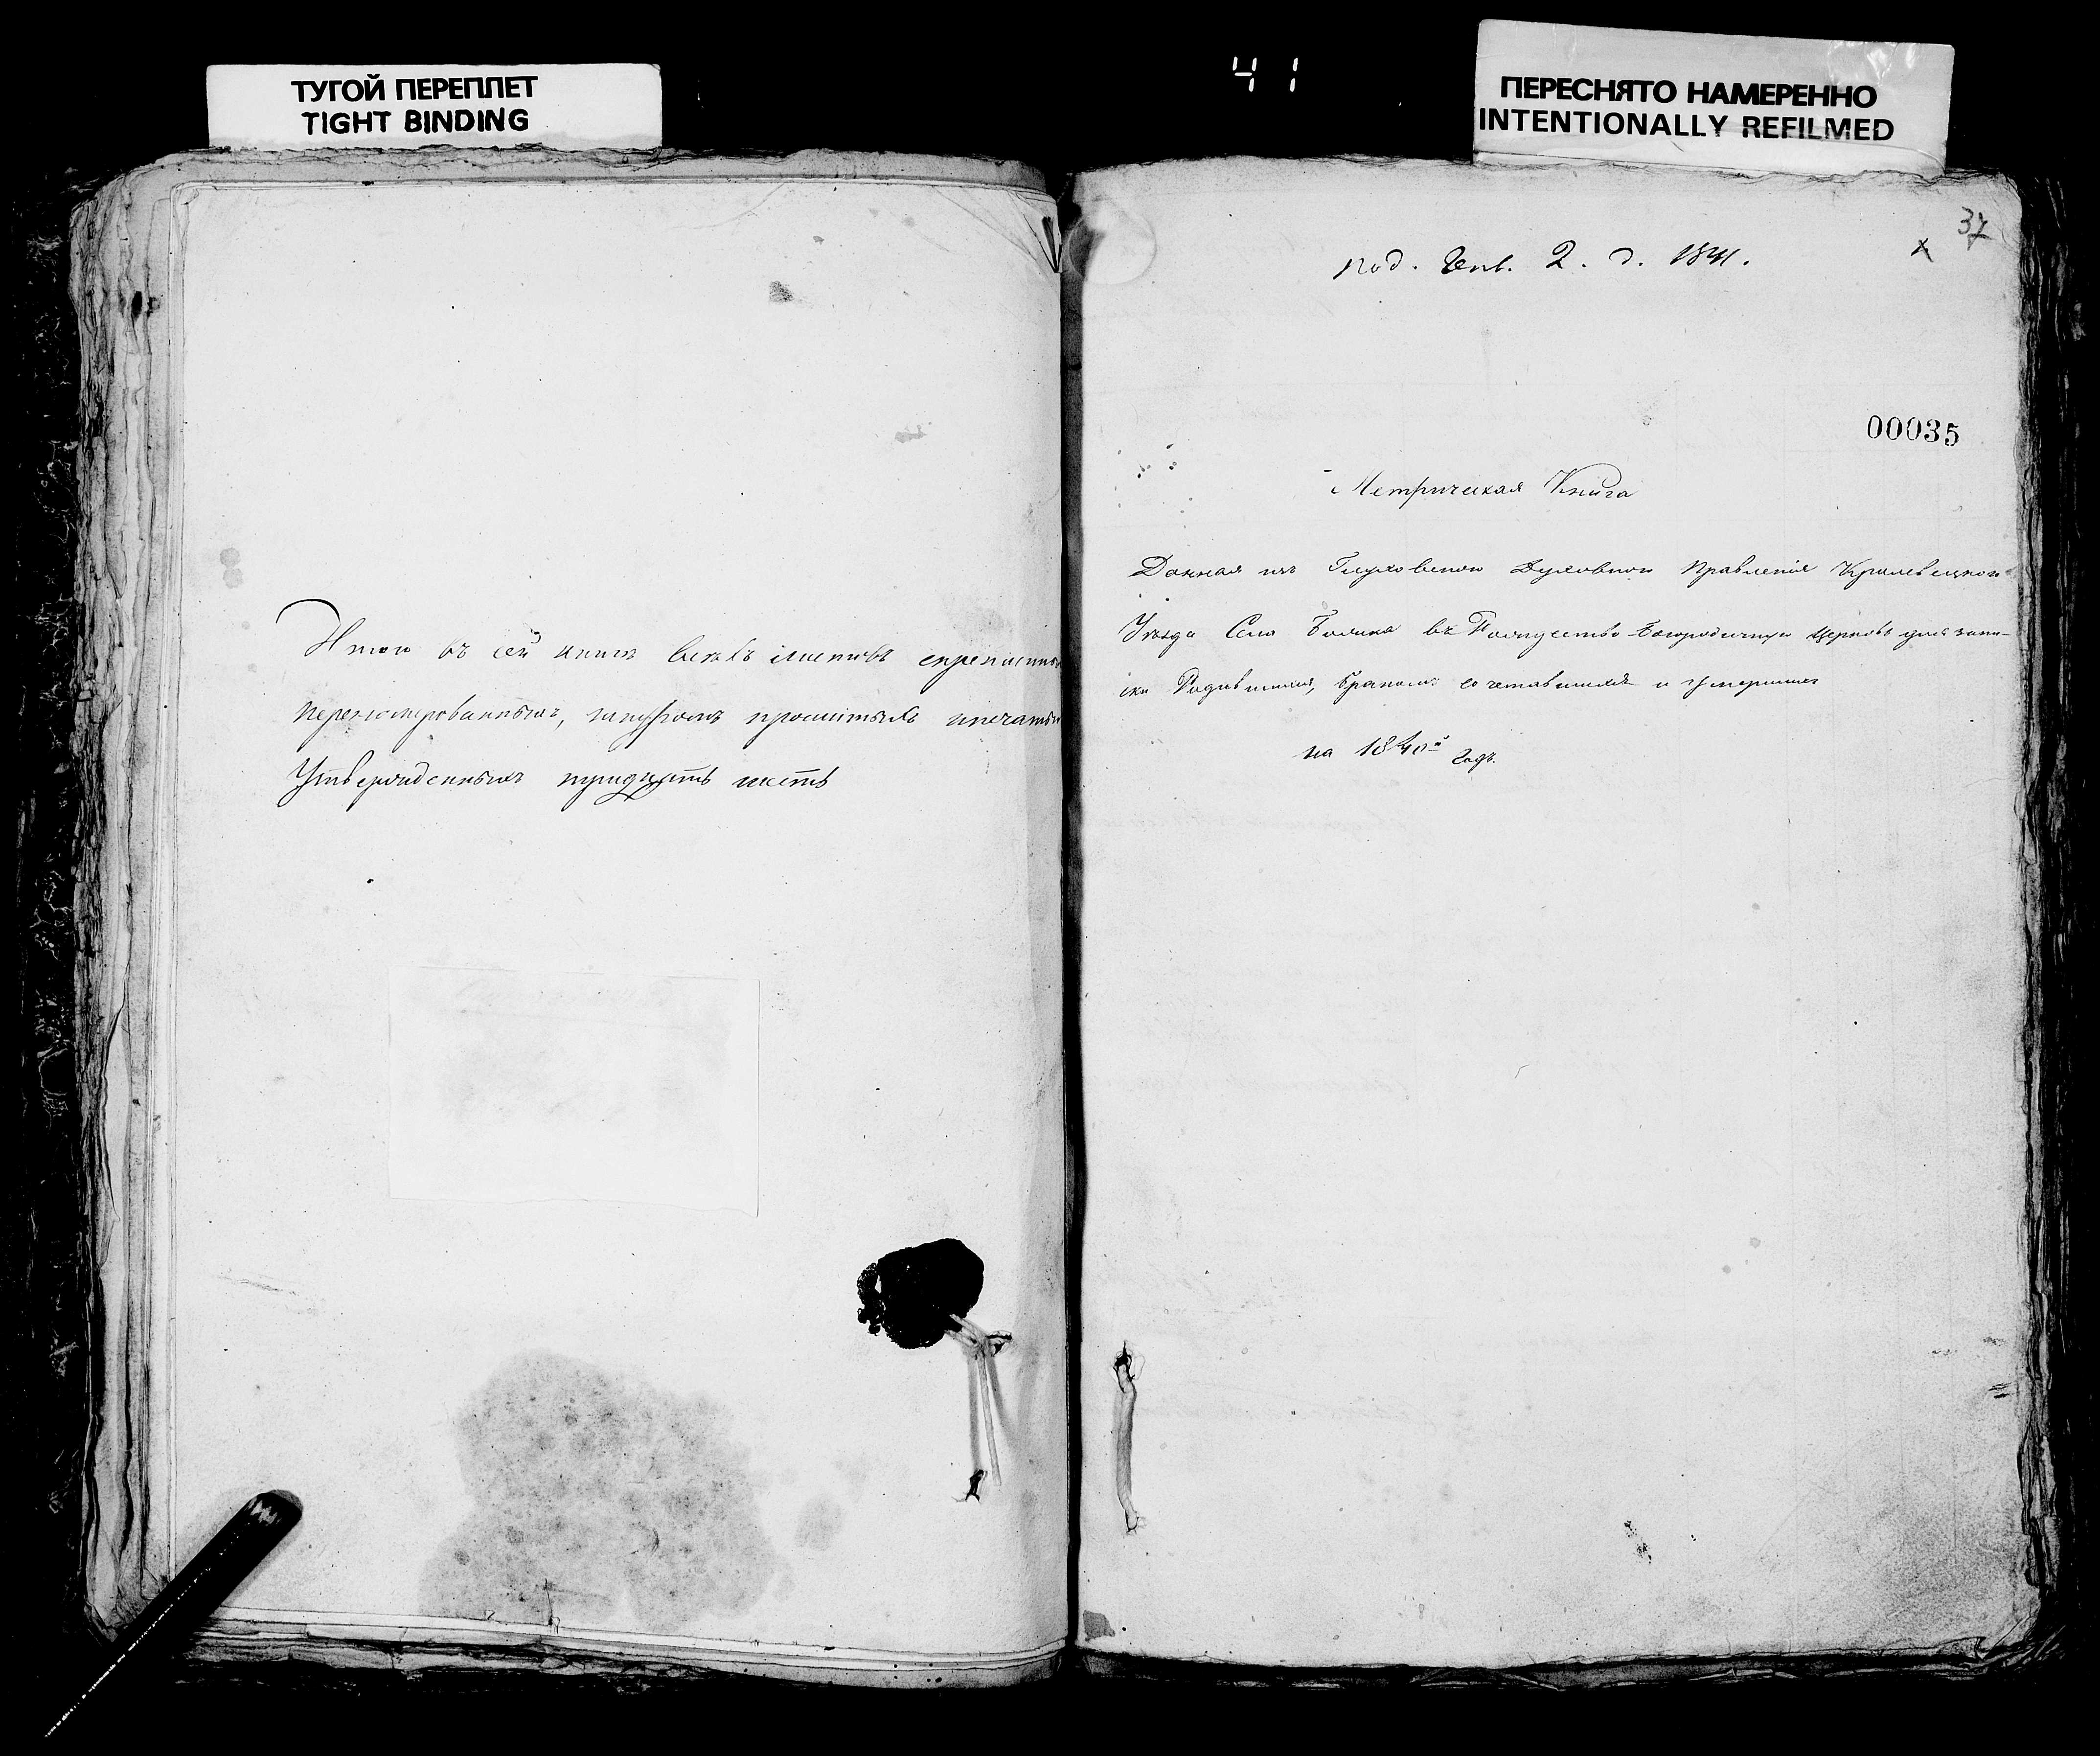 ТУГОЙ ПЕРЕПЛЕТ
TIGHT BINDING
41
ПЕРЕСНЯТО НАМЕРЕННО
INTENTIONALLY REFILMED
Итого въ сей книгѣ всѣхъ листовъ
перенумерованныхъ, шнуромъ прошитыхъ ипечатью
Утвержденныхъ тридцать шесть
37
под. Генв. 2. д. 1841.
00035
Метрическая Книга
Данная изъ Глуховского Духовного Правленія Кролевецкого
Уѣзда Села въ Рождество-Богородичную Церковь для запи-
ски Родившихся, бракомъ сочетавшихся и умершихъ
на 1840й годъ.